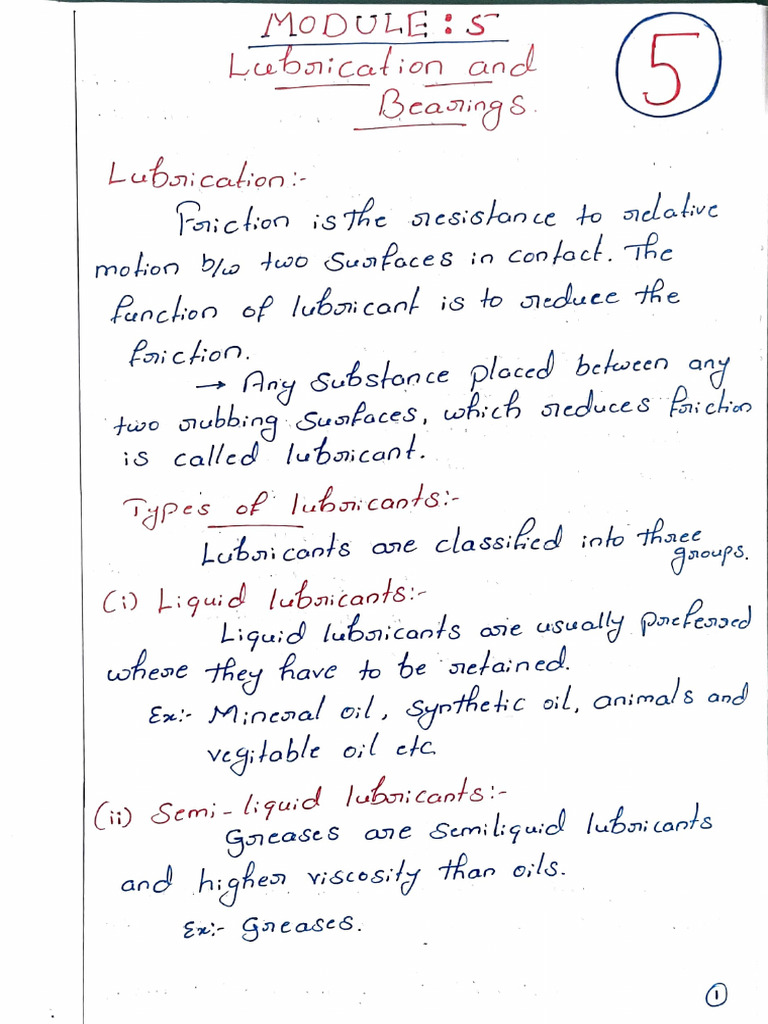 MODULE: 5
5
Lubrication and
Bearings.
Lubrication:-
Friction is the resistance to relative
motion b/w two Surfaces in contact. The
function of lubricant is to reduce the
friction.
→ Any Substance placed between any
two rubbing Surfaces, which reduces friction
is called lubricant.
Types of lubricants:-
Lubricants are classified into three
groups.
(i) Liquid lubricants:-
Liquid lubricants are usually preferred
where they have to be retained.
Ex:- Mineral oil, Synthetic oil, animals and
vegitable oil etc.
(ii) Semi-liquid lubricants:-
Greases are Semiliquid lubricants
and higher viscosity than oils.
Ex:- Greases.
1